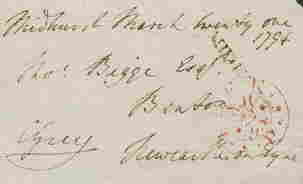 Midhurst March twenty one
1794
Thos. Bigge Esqr.
Benton
CGrey
Newcastle on Tyne